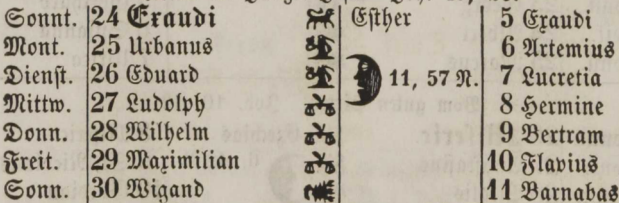 Sonnt. 24 Exaudi Esther 5 Exaudi
Mont. 25 Urbanus 6 Artemius
Dienst. 26 Eduard 11, 57 N. 7 Lucretia
Mittw. 27 Ludolph 8 Hermine
Donn. 28 Wilhelm 9 Bertram
Freit. 29 Maximilian 10 Flavius
Sonn. 30 Wigand 11 Barnabas